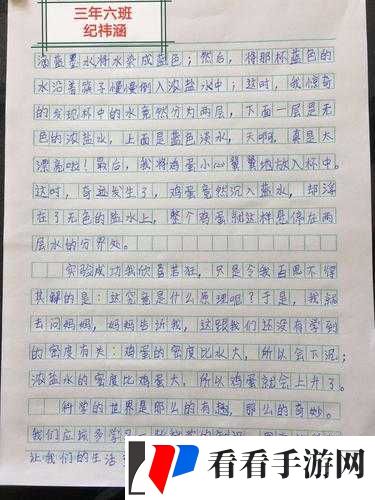 三年六班
纪祎涵
滴蓝墨水将水染成蓝色；然后，将那杯蓝色的
水沿着筷子慢慢倒入浓盐水中；这时，我惊奇
的发现杯中的水竟然分为两层，下面一层是无
色的浓盐水，上面是蓝色淡水，天啊，真是太
漂亮啦！最后，我将鸡蛋小心翼翼地放入杯中。
这时，奇迹发生了，鸡蛋竟然沉入盐水，却浮
在了无色的盐水上，整个鸡蛋就这样悬停在两
层水的分界处。
实验成功我欣喜若狂，只是令我百思不得
其解的是：这究竟是什么原理呢？于是，我跑
去问妈妈，妈妈告诉我，这跟我们还没有学到
的密度有关：鸡蛋的密度比水大，所以会下沉；
浓盐水的密度比鸡蛋大，所以鸡蛋就会上升了。
科学的世界是那么的有趣，那么的奇妙。
我们应该多学习
让我们的生活
看看手游网
www.kkssyy.com